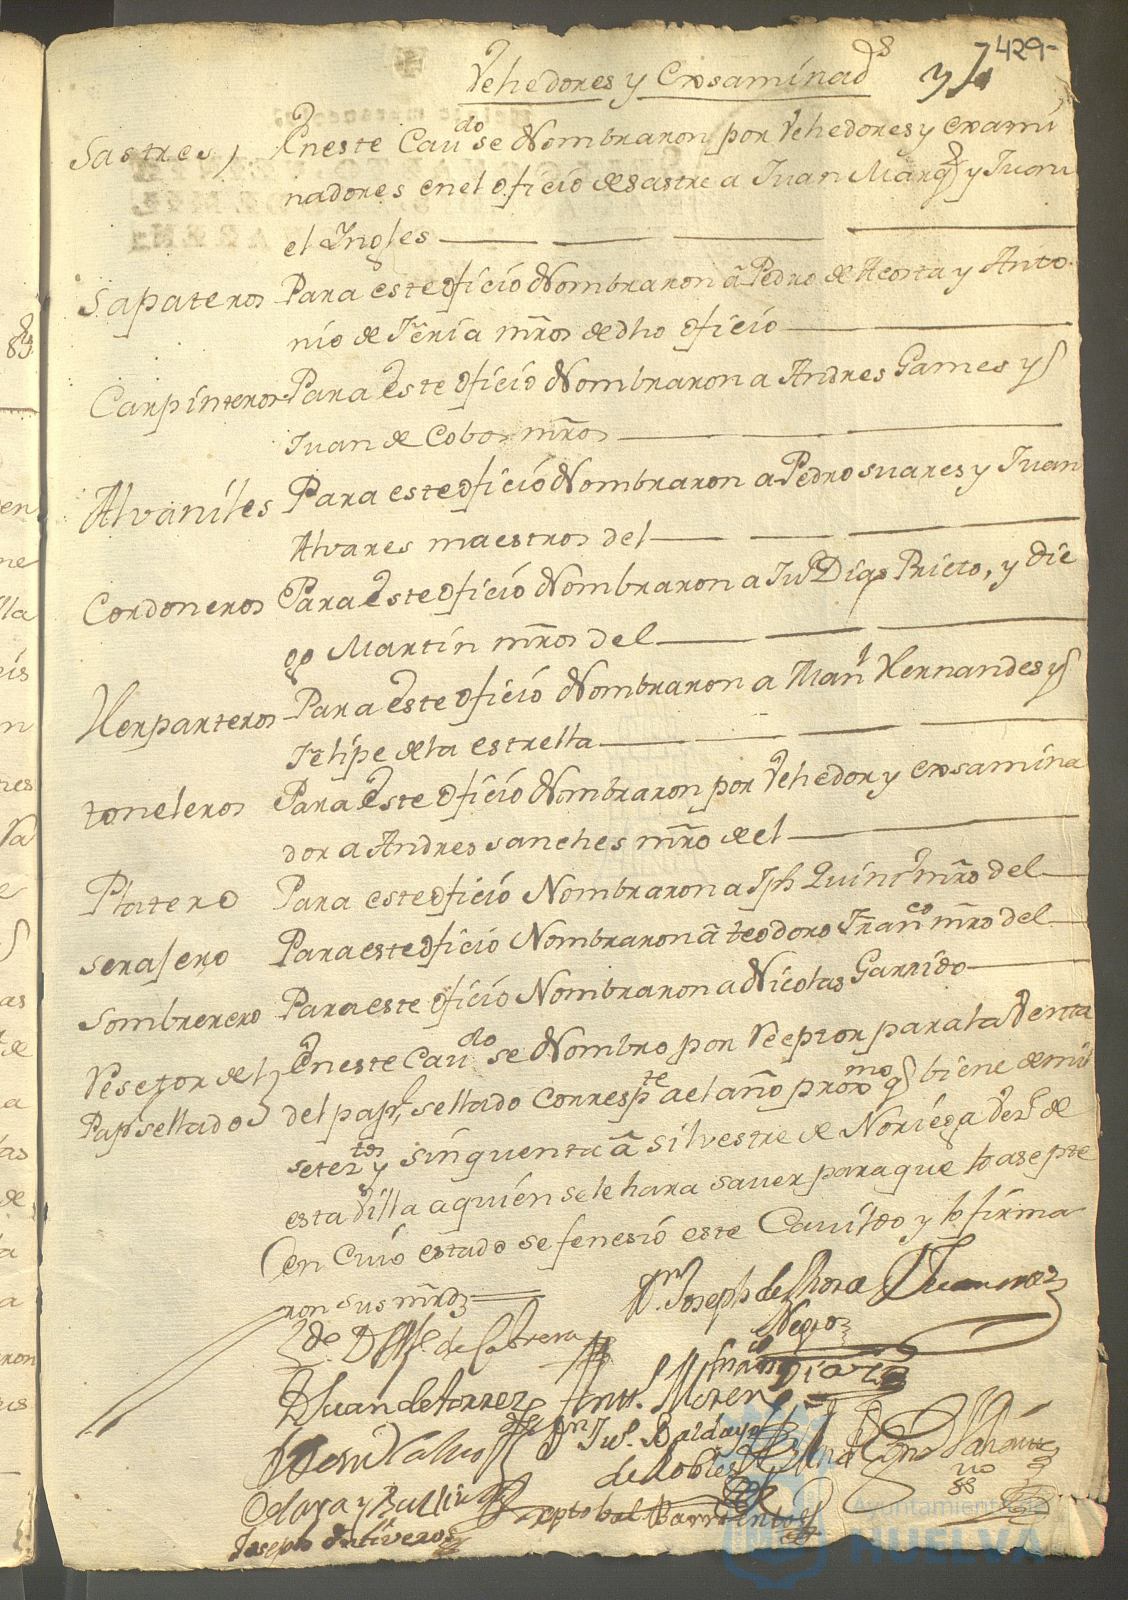 429
Vehedores y Exsaminad.s
Sastres, En este Cav.do se Nombraron por Vehedores y exami
nadores en el oficio de sastre a Juan Marq.z y Juan
el Yngles
Sapateros Para este oficio Nombraron a Pedro de Acosta y Anto
nio de mr̃os de dho oficio
Carpinteros Para este oficio Nombraron a Andres Games y
Juan de Cobos mr̃os
Alvaniles Para este oficio Nombraron a Pedro suares y Juan
Alvares maestros del
Cordoneros Para este oficio Nombraron a Ju.o Dias Prieto, y Die
go Martin mr̃os del
Herparteros Para este oficio Nombraron a Man.l Hernandes y
Felipe de la estrella
toneleros Para este oficio Nombraron por Vehedor y exsamina
dor a Andres sanches mr̃o de el
Platero Para este oficio Nombraron a Jph mr̃o del
serajero Para este oficio Nombraron a teodoro Fran.co mr̃o del
Sombrerero Para este oficio Nombraron a Nicolas Garrido
Resetor del En este Cav.do se Nombro por Reseptor para la Venta
Pap.l sellado del pap.l sellado Corresp.te a el año prox.mo q biene de mil
setez.tos y sinquenta a silvestre de Noriega Vez.o de
esta Villa a quien se le hara saver para que lo asepte
en Cuio estado se fenesió este Cavildo y lo firma
ron sus mr̃dz
D.n Joseph de Mora Negro
de Cabrera
Diaz
D Juan de torres Ant.o Moreno
D.n Ju.o Baldaya
de Robles
Olaya y Bullin
Xptobal Barrientos
Joseph Ontiveros
Ayuntamiento de
HUELVA